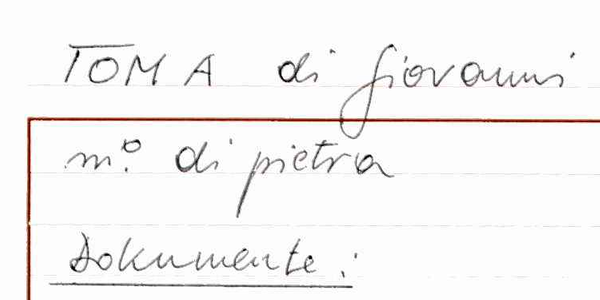 TOMA di Giovanni
m.º di pietra
Dokumente: